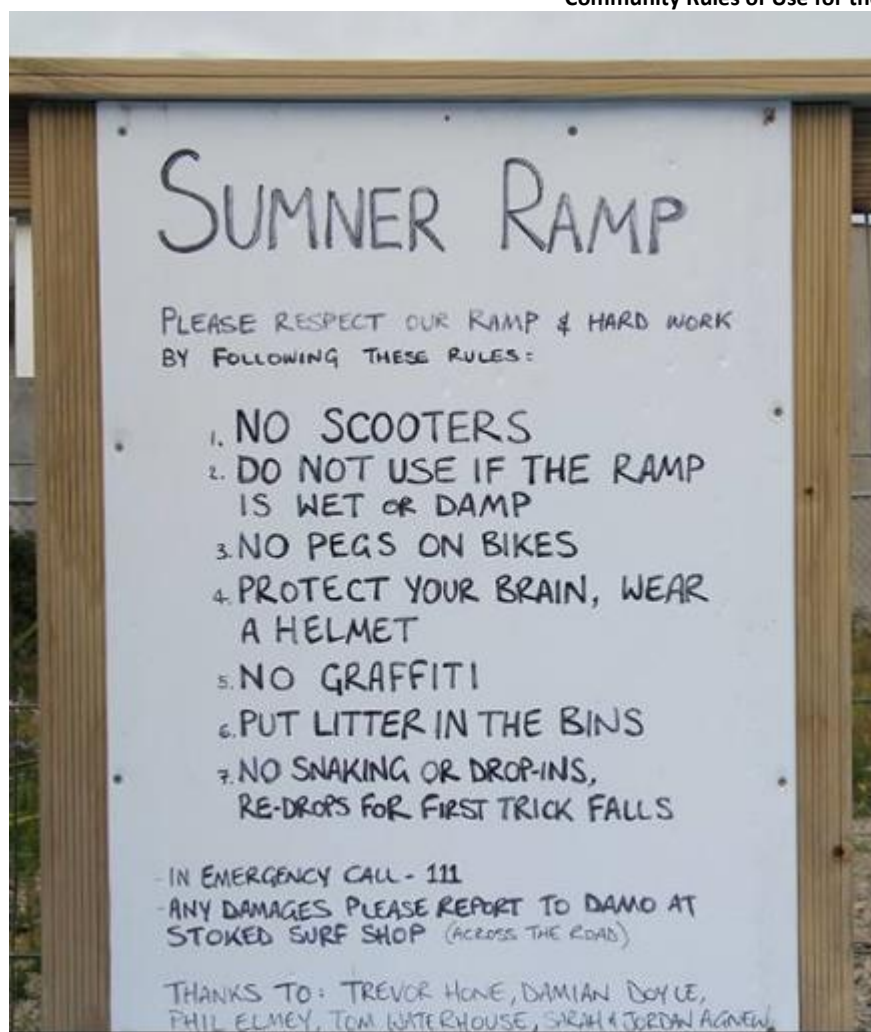 Community Rules of Use for the
SUMNER RAMP
PLEASE RESPECT OUR RAMP & HARD WORK
BY FOLLOWING THESE RULES:
1. NO SCOOTERS
2. DO NOT USE IF THE RAMP
IS WET OR DAMP
3. NO PEGS ON BIKES
4. PROTECT YOUR BRAIN, WEAR
A HELMET
5. NO GRAFFITI
6. PUT LITTER IN THE BINS
7. NO SNAKING OR DROP-INS,
RE-DROPS FOR FIRST TRICK FALLS
- IN EMERGENCY CALL - 111
- ANY DAMAGES PLEASE REPORT TO DAMO AT
STOKED SURF SHOP (ACROSS THE ROAD)
THANKS TO: TREVOR HONE, DAMIAN DOYLE,
PHIL ELMEY, TOM WATERHOUSE, SARAH & JORDAN AGNEW,